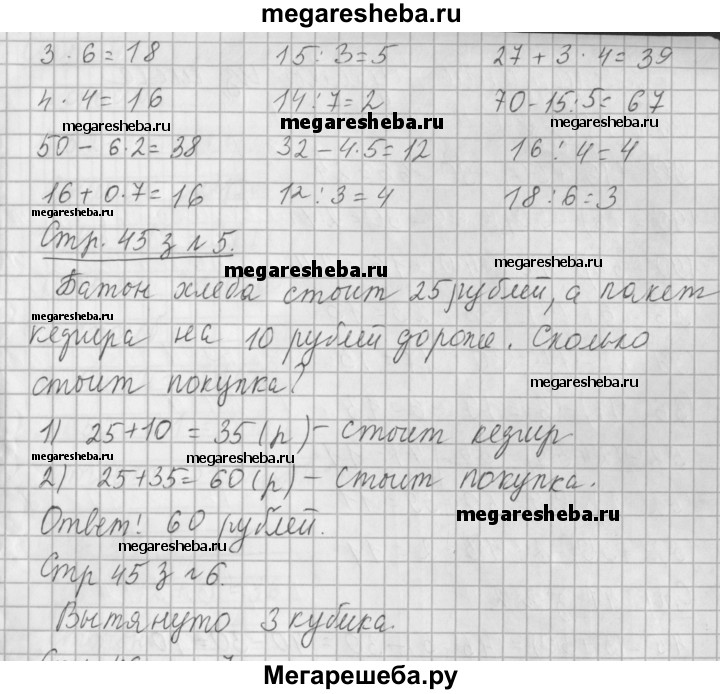 megaresheba.ru
3 · 6 = 18 15 : 3 = 5 27 + 3 · 4 = 39
4 · 4 = 16 14 : 7 = 2 70 - 15 : 5 = 67
megaresheba.ru megaresheba.ru megaresheba.ru
50 - 6 · 2 = 38 32 - 4 · 5 = 12 16 : 4 = 4
16 + 0 · 7 = 16 12 : 3 = 4 18 : 6 = 3
megaresheba.ru
Стр. 45 з №5.
megaresheba.ru
Батон хлеба стоит 25 рублей, а пакет
megaresheba.ru
кефира на 10 рублей дороже. Сколько
стоит покупка?
megaresheba.ru
1) 25 + 10 = 35 (р) - стоит кефир
megaresheba.ru megaresheba.ru
2) 25 + 35 = 60 (р) - стоит покупка.
Ответ: 60 рублей.
megaresheba.ru
megaresheba.ru
Стр 45 з №6.
Вытянуто 3 кубика.
Мегарешеба.ру